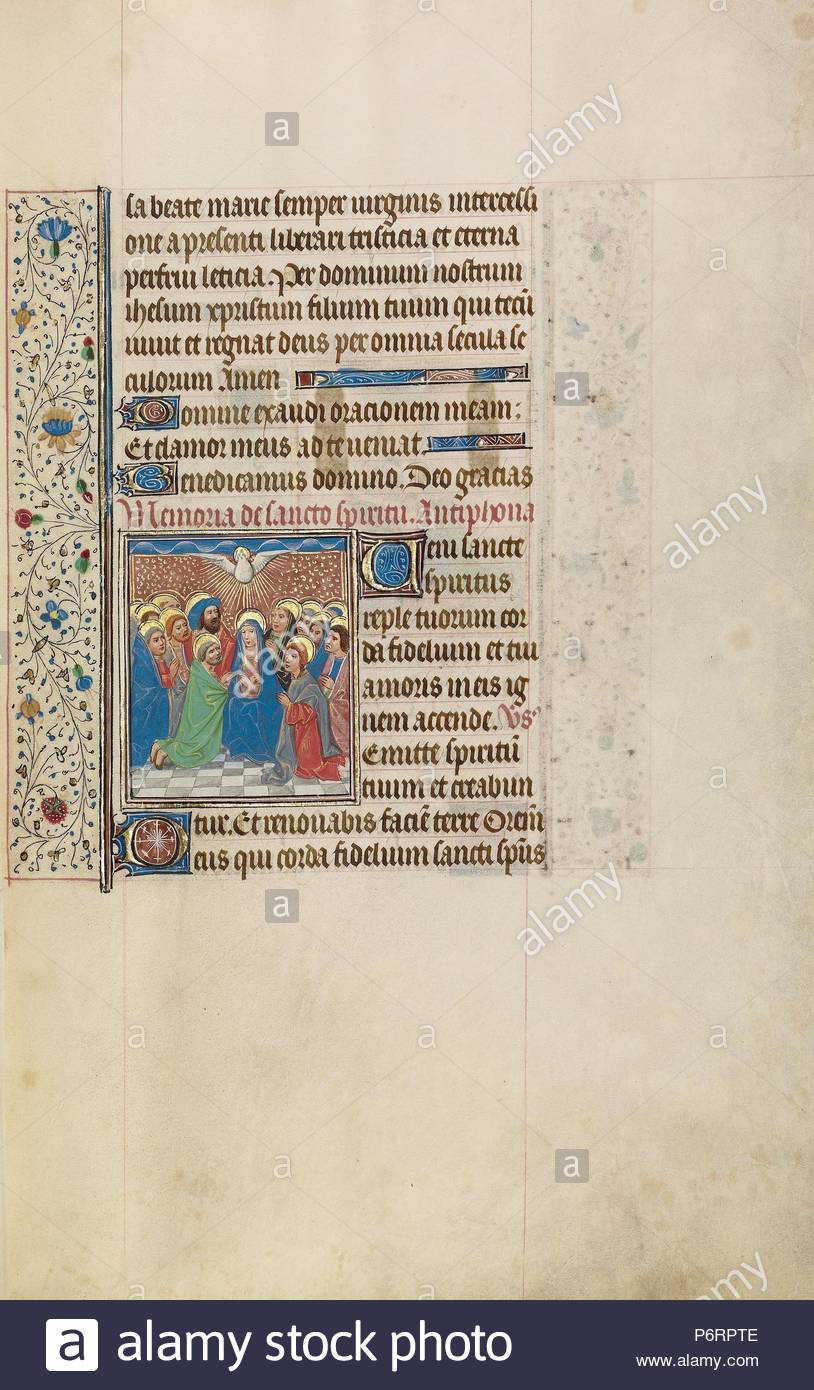 sa beate marie semper virginis intercessi
one a presenti liberari tristicia et eterna
perfrui leticia. Per dominum nostrum
ihesum xpristum filium tuum qui tecū
vivit et regnat deus per omnia secula se
culorum Amen
Domine exaudi oracionem meam:
Et clamor meus ad te veniat.
Benedicamus domino. Deo gracias
Memoria de sancto spiritu. Antiphona
Veni sancte
spiritus
reple tuorum cor
da fidelium et tui
amoris in eis ig
nem accende. Vs
Emitte spiritū
tuum et creabun
tur. Et renovabis faciē terre Orem̄
Deus qui corda fidelium sancti sp̄us
alamy
alamy
alamy
alamy
alamy
a alamy stock photo
P6RPTE
www.alamy.com